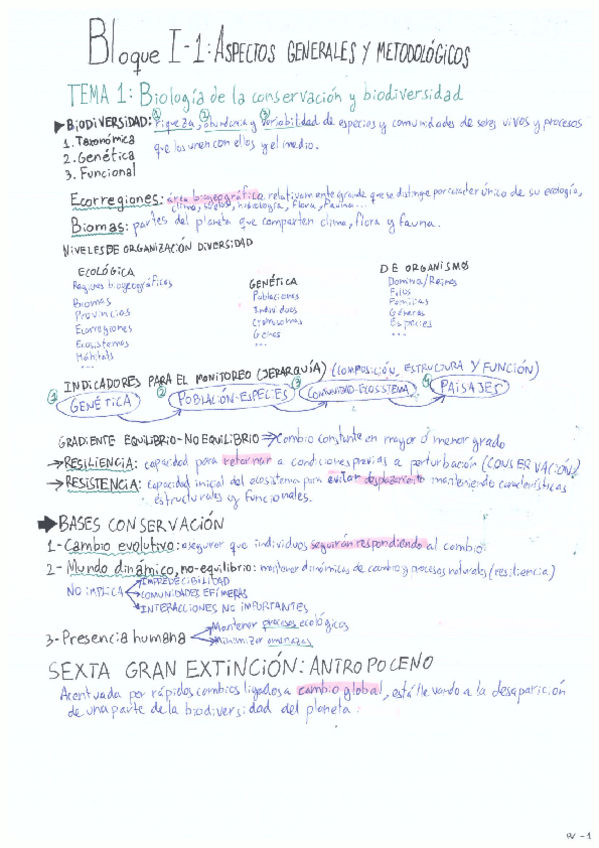 Bloque I-1: ASPECTOS GENERALES Y METODOLÓGICOS
TEMA 1: Biología de la conservación y biodiversidad
① ② ③
▶ BIODIVERSIDAD: Riqueza, abundancia y variabilidad de especies y comunidades de seres vivos y procesos
1. Taxonómica
que los unen con ellos y el medio.
2. Genética
3. Funcional
Ecorregiones: área biogeográfica relativamente grande que se distingue por carácter único de su ecología,
clima, suelos, hidrología, flora, fauna...
Biomas: partes del planeta que comparten clima, flora y fauna.
NIVELES DE ORGANIZACIÓN DIVERSIDAD
ECOLÓGICA
Regiones biogeográficas
Biomas
Provincias
Ecorregiones
Ecosistemas
Hábitats
...
GENÉTICA
Poblaciones
Individuos
Cromosomas
Genes
...
DE ORGANISMOS
Dominio/Reinos
Filos
Familias
Géneros
Especies
...
INDICADORES PARA EL MONITOREO (JERARQUÍA) (COMPOSICIÓN, ESTRUCTURA Y FUNCIÓN)
① GENÉTICA ② POBLACIÓN-ESPECIES ③ COMUNIDAD-ECOSISTEMA ④ PAISAJES
GRADIENTE EQUILIBRIO-NO EQUILIBRIO ⇒ Cambio constante en mayor o menor grado
→ RESILIENCIA: capacidad para retornar a condiciones previas a perturbación (CONSERVACIÓN)
→ RESISTENCIA: capacidad inicial del ecosistema para evitar desplazamiento manteniendo características
estructurales y funcionales.
➡ BASES CONSERVACIÓN
1- Cambio evolutivo: asegurar que individuos seguirán respondiendo al cambio.
2- Mundo dinámico, no-equilibrio: mantener dinámicas de cambio y procesos naturales (resiliencia)
NO IMPLICA
IMPREDECIBILIDAD
COMUNIDADES EFÍMERAS
INTERACCIONES NO IMPORTANTES
3- Presencia humana
Mantener procesos ecológicos
Minimizar amenazas
SEXTA GRAN EXTINCIÓN: ANTROPOCENO
Acentuada por rápidos cambios ligados a cambio global, está llevando a la desaparición
de una parte de la biodiversidad del planeta.
- 1